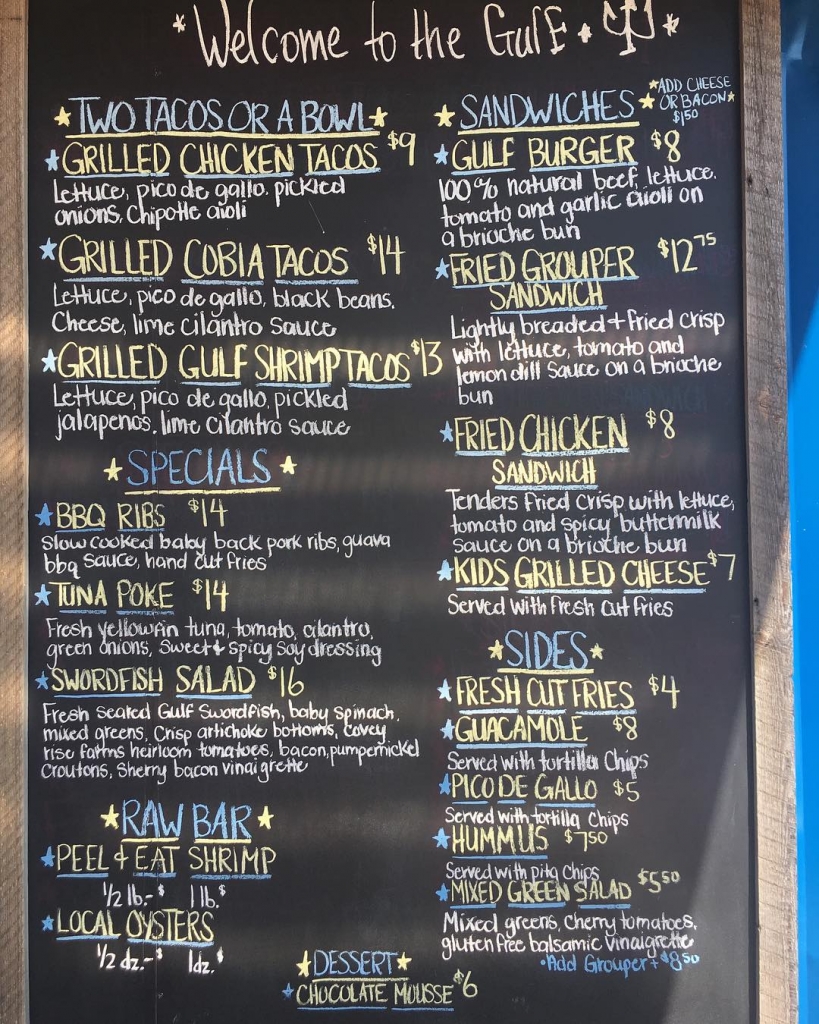 *Welcome to the Gulf.*
TWO TACOS OR A BOWL
GRILLED CHICKEN TACOS $9
Lettuce, pico de gallo, pickled
onions, Chipotle aioli
GRILLED COBIA TACOS $14
Lettuce, pico de gallo, black beans,
Cheese, lime cilantro sauce
GRILLED GULF SHRIMP TACOS $13
Lettuce, pico de gallo, pickled
jalapenos, lime cilantro sauce
SPECIALS
BBQ RIBS $14
Slow cooked baby back pork ribs, guava
bbq sauce, hand cut fries
TUNA POKE $14
Fresh yellowfin tuna, tomato, cilantro,
green onions, sweet & spicy soy dressing
SWORDFISH SALAD $16
Fresh seared Gulf Swordfish, baby spinach,
mixed greens, Crisp artichoke bottoms, Covey
rise farms heirloom tomatoes, bacon, pumpernickel
Croutons, Sherry bacon vinaigrette
RAW BAR
PEEL & EAT SHRIMP
1/2 lb.-$ 1 lb.$
LOCAL OYSTERS
1/2 dz.-$ 1dz.$
SANDWICHES
*ADD CHEESE
OR BACON*
$1.50
GULF BURGER $8
100% natural beef, lettuce,
tomato and garlic aioli on
a brioche bun
FRIED GROUPER $12.75
SANDWICH
Lightly breaded + fried Crisp
with lettuce, tomato and
lemon dill sauce on a brioche
bun
FRIED CHICKEN $8
SANDWICH
Tenders fried crisp with lettuce,
tomato and spicy buttermilk
sauce on a brioche bun
KIDS GRILLED CHEESE $7
Served with fresh cut fries
SIDES
FRESH CUT FRIES $4
GUACAMOLE $8
Served with tortilla Chips
PICO DE GALLO $5
Served with tortilla Chips
HUMMUS $7.50
Served with pita Chips
MIXED GREEN SALAD $5.50
Mixed greens, Cherry tomatoes,
gluten free balsamic vinaigrette
•Add Grouper + $8.50
DESSERT
CHOCOLATE MOUSSE $6